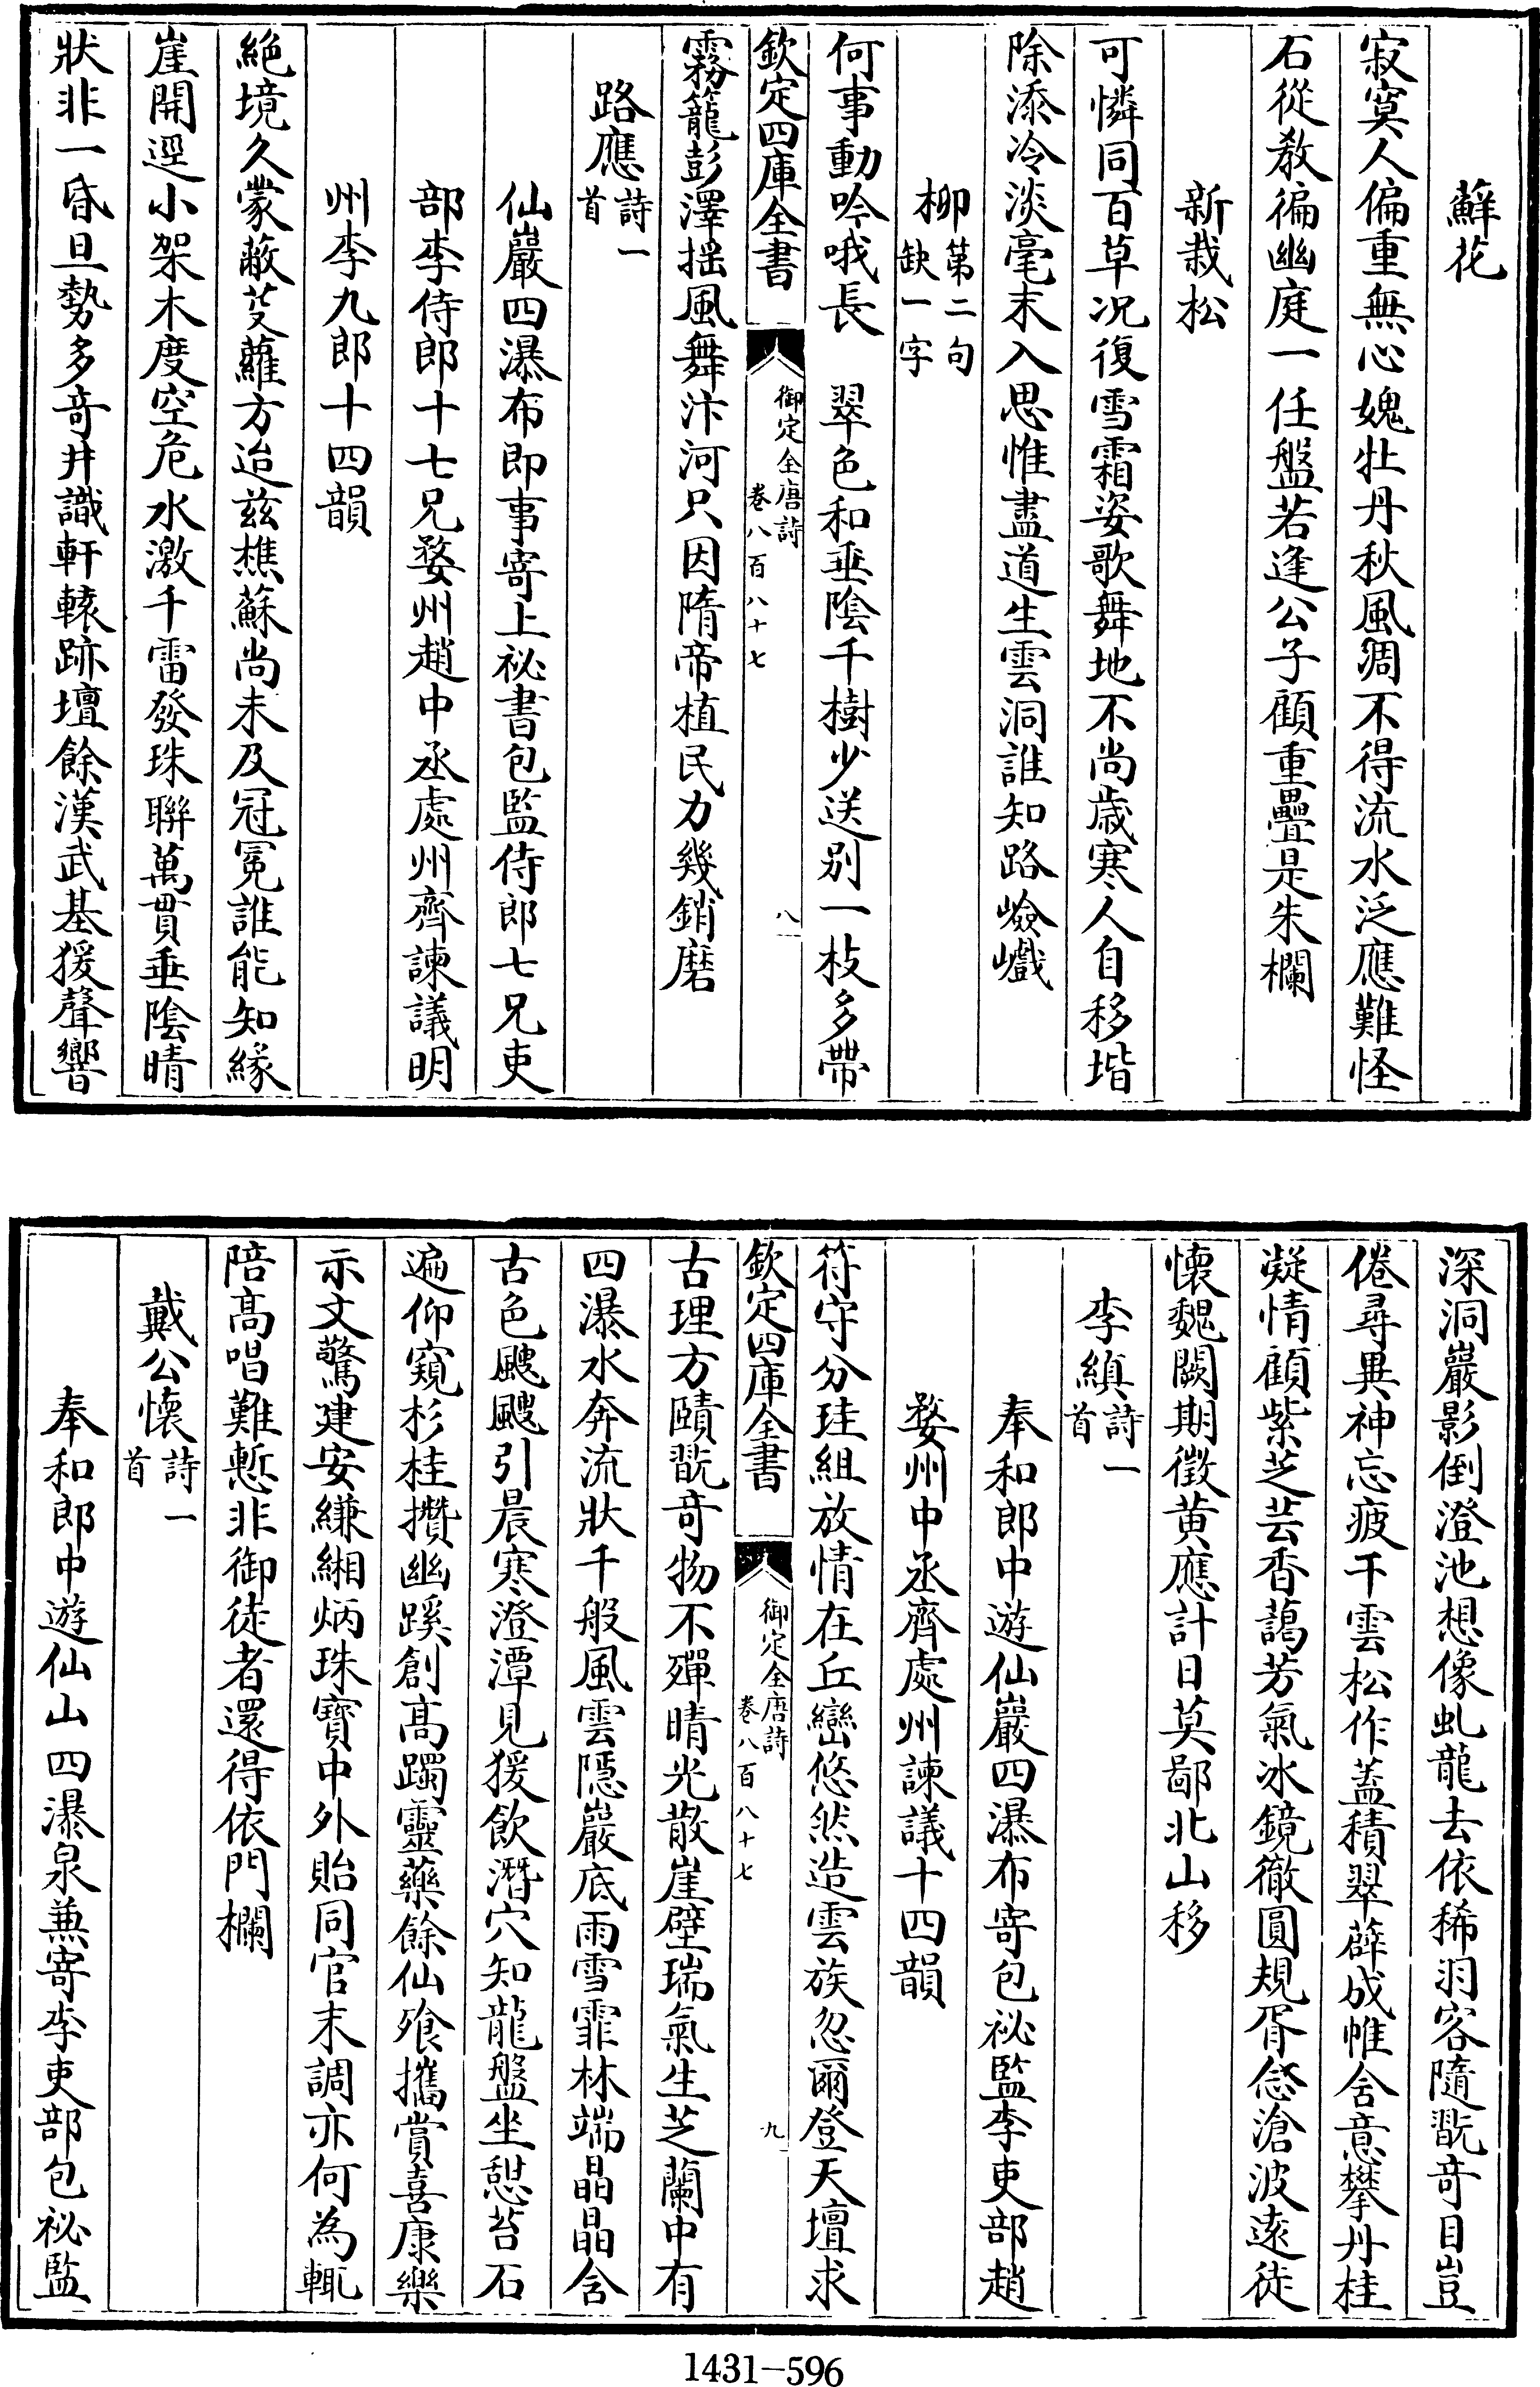 蘚花
寂寞人偏重無心媿牡丹秋風凋不得流水泛應難怪
石從教徧幽庭一任盤若逢公子顧重疊是朱欄
新栽松
可憐同百草况復雪霜姿歌舞地不尚歲寒人自移堦
除添冷淡毫末入思惟盡道生雲洞誰知路嶮巇
柳第二句缺一字
何事動吟哦長　翠色和垂陰千樹少送别一枝多帶
欽定四庫全書
御定全唐詩
卷八百八十七
八
霧籠彭澤揺風舞汴河只因隋帝植民力幾銷磨
路應詩一首
仙巖四瀑布即事寄上祕書包監侍郎七兄吏
部李侍郎十七兄婺州趙中丞處州齊諫議明
州李九郎十四韻
絶境久蒙蔽芟蘿方迨兹樵蘇尚未及冠冕誰能知緣
崖開逕小架木度空危水激千雷發珠聯萬貫垂陰晴
狀非一昏旦勢多奇井識軒轅跡壇餘漢武基猨聲響
深洞巖影倒澄池想像虬龍去依稀羽客隨翫奇目豈
倦尋異神忘疲干雲松作蓋積翠薜成帷含意攀丹桂
凝情顧紫芝芸香藹芳氣冰鏡徹圓規胥𢚩滄波遠徒
懷魏闕期徵黄應計日莫鄙北山移
李縝詩一首
奉和郎中遊仙巖四瀑布寄包祕監李吏部趙
婺州中丞齊處州諫議十四韻
符守分珪組放情在丘巒悠然造雲族忽爾登天壇求
欽定四庫全書
御定全唐詩
卷八百八十七
九
古理方賾翫奇物不殫晴光散崖壁瑞氣生芝蘭中有
四瀑水奔流狀千般風雲隱巖底雨雪霏林端晶晶含
古色颼颼引晨寒澄潭見猨飲潛穴知龍盤坐憇苔石
遍仰窺杉桂攢幽蹊創高躅靈藥餘仙飱攜賞喜康樂
示文驚建安縑緗炳珠寶中外貽同官末調亦何為輒
陪高唱難慙非御徒者還得依門欄
戴公懷詩一首
奉和郎中遊仙山四瀑泉兼寄李吏部包祕監
1431-596